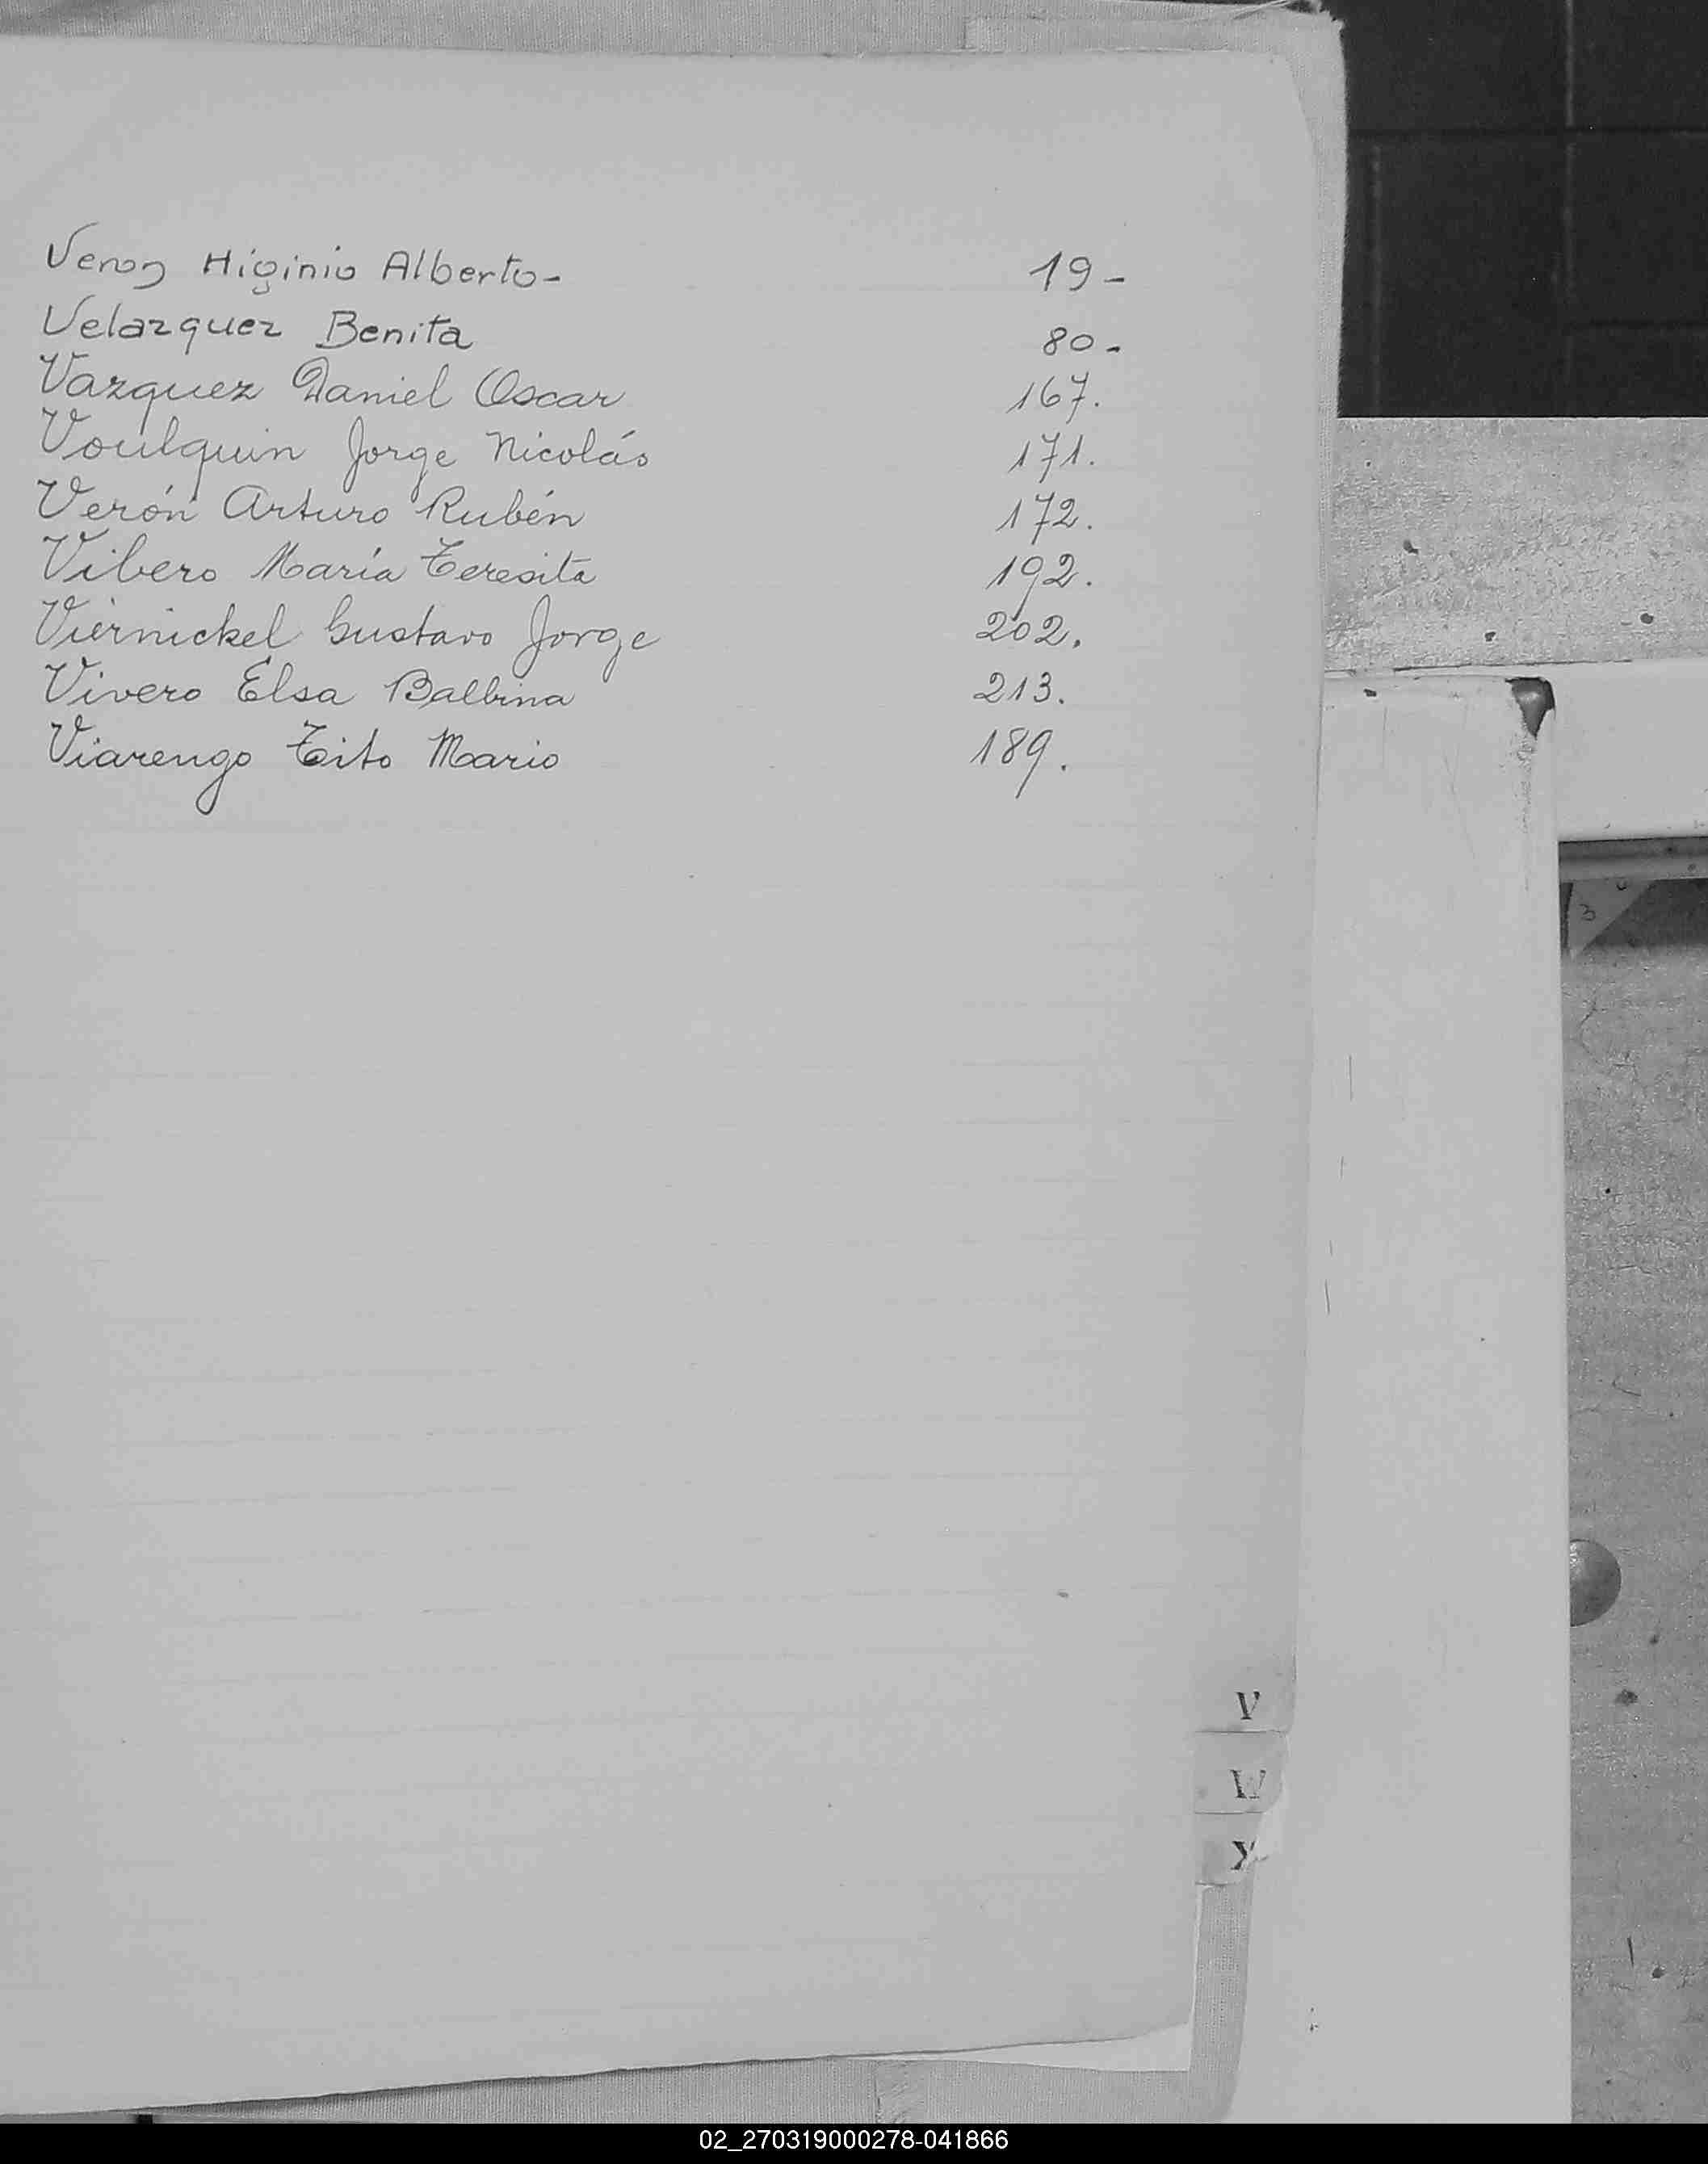 Veron Higinio Alberto- 19-
Velazquez Benita 80-
Vazquez Daniel Oscar 167.
Voulquin Jorge Nicolás 171.
Verón Arturo Rubén 172.
Vibero María Teresita 192.
Viernickel Gustavo Jorge 202.
Vivero Elsa Balbina 213.
Viarengo Tito Mario 189.
3
V
W
X
02_270319000278-041866